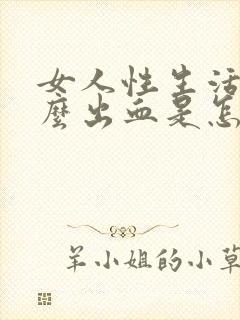 女人性生活
麽出血是怎
羊小姐的小草